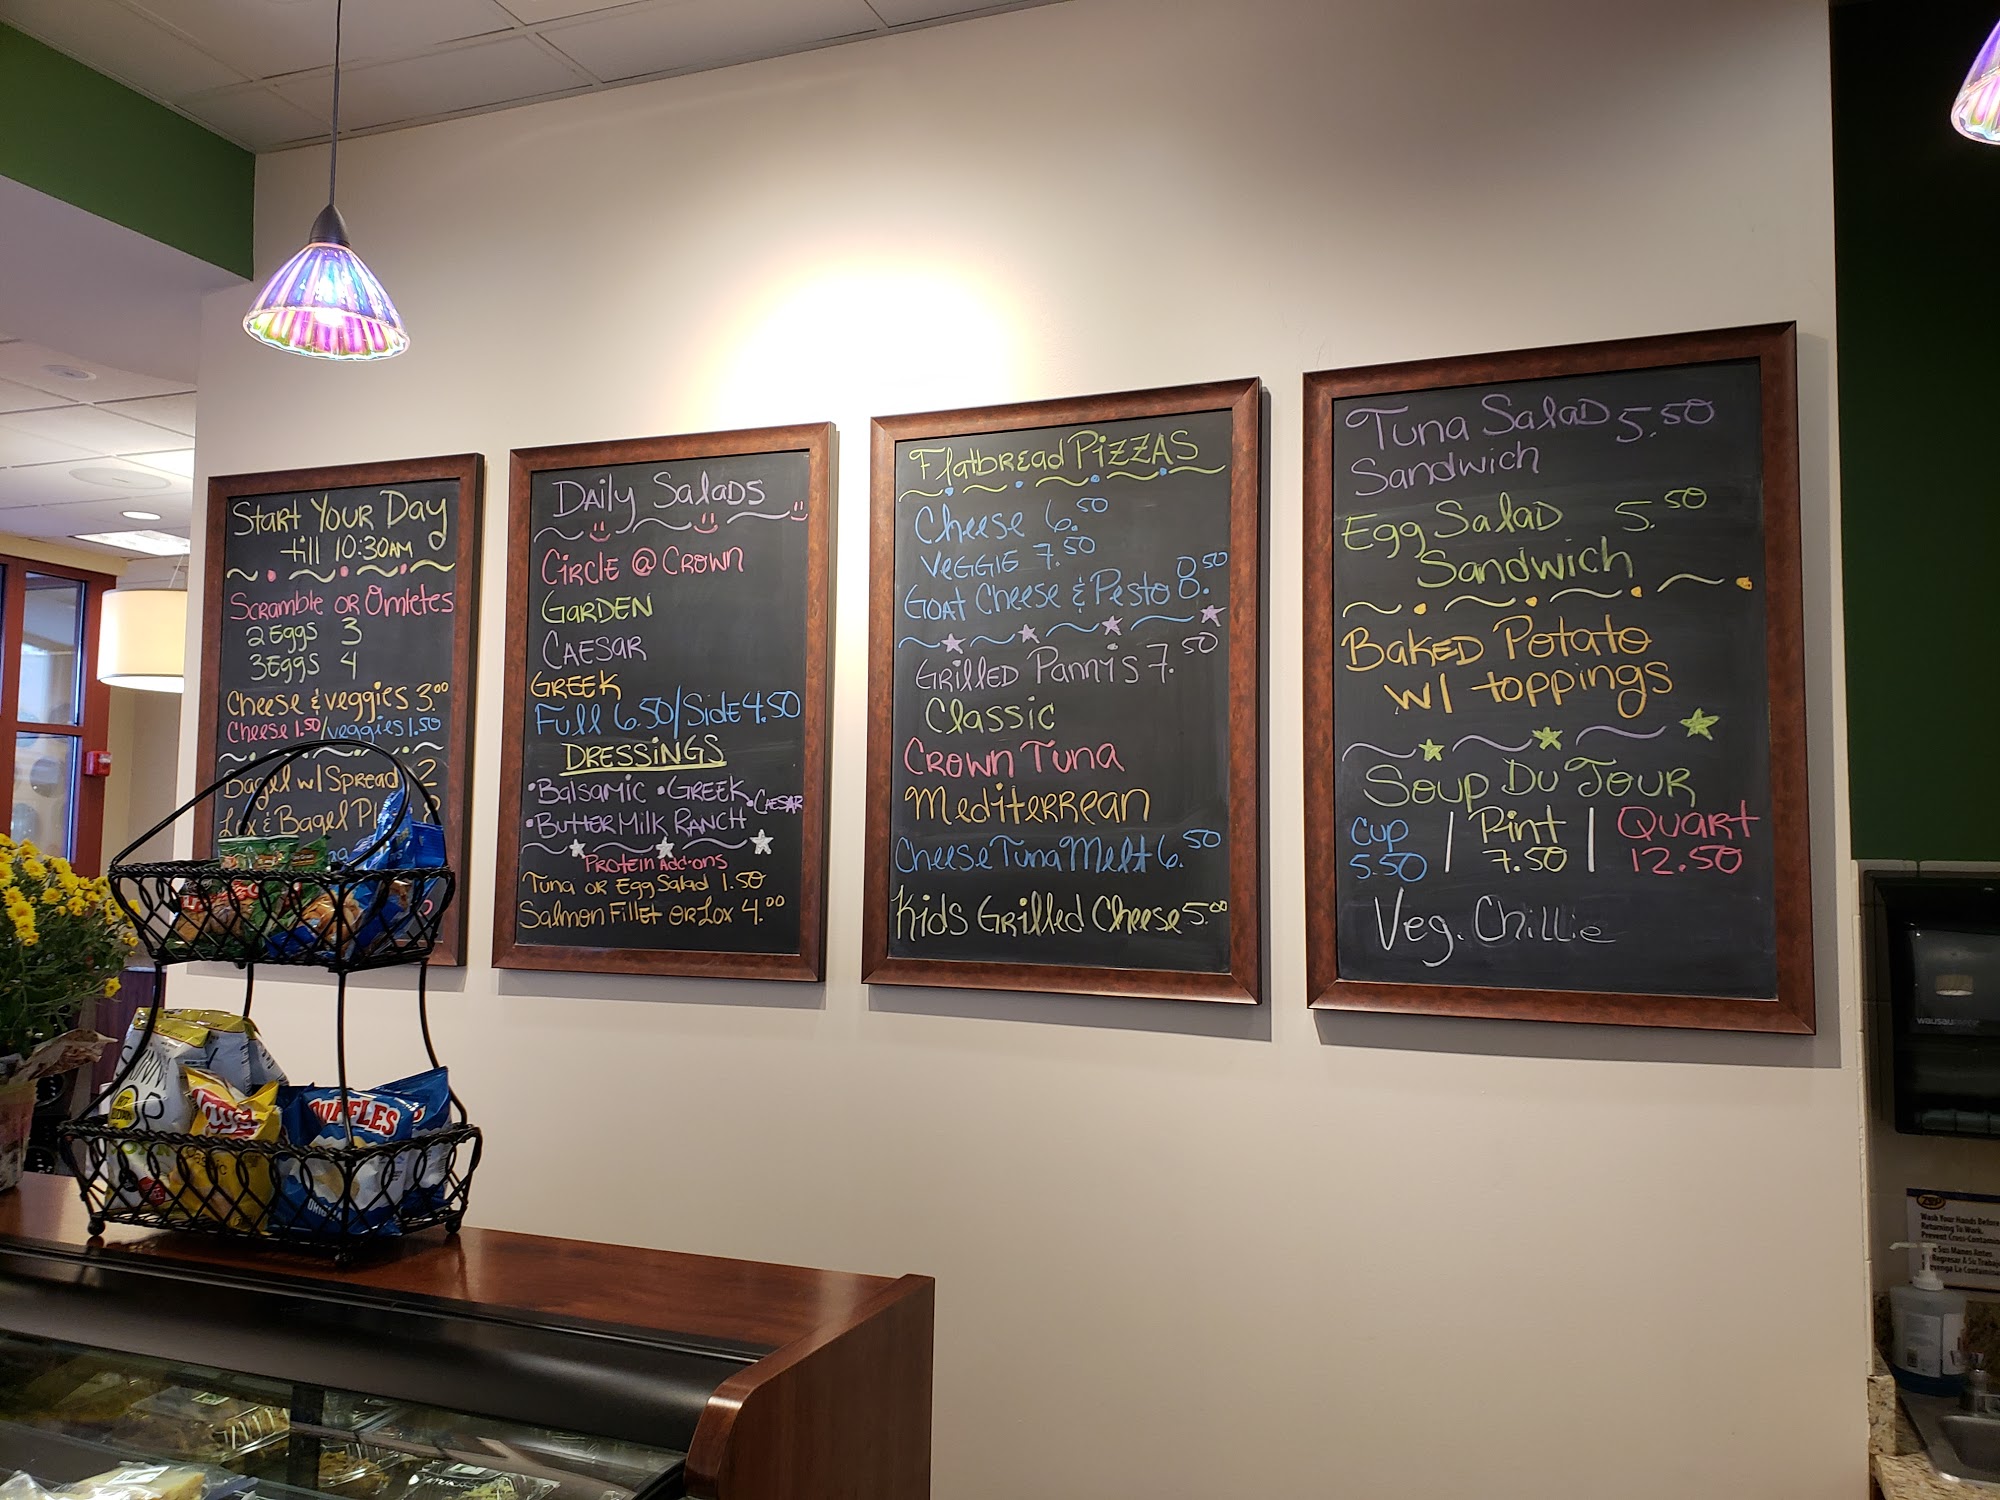 Start Your Day
till 10:30AM
Scramble or Omletes
2 Eggs 3
3 Eggs 4
Cheese & veggies 3.00
Cheese 1.50/veggies 1.50
Bagel w/ Spread 2
Lox & Bagel
Daily Salads
Circle @ Crown
Garden
Caesar
Greek
Full 6.50/Side 4.50
Dressings
•Balsamic •Greek •Caesar
•Butter Milk Ranch
Protein Add-ons
Tuna or Egg Salad 1.50
Salmon Fillet or Lox 4.00
Flatbread Pizzas
Cheese 6.50
Veggie 7.50
Goat Cheese & Pesto 8.50
Grilled Panni's 7.50
Classic
Crown Tuna
Mediterrean
Cheese Tuna Melt 6.50
Kids Grilled Cheese 5.00
Tuna Salad 5.50
Sandwich
Egg Salad 5.50
Sandwich
Baked Potato
w/ toppings
Soup Du Jour
Cup | Pint | Quart
5.50 7.50 12.50
Veg. Chillie
RUFFLES
Lay's
Classic
wausau
Wash Your Hands Before
Returning To Work.
Prevent
Manos Antes
Regresar A Su